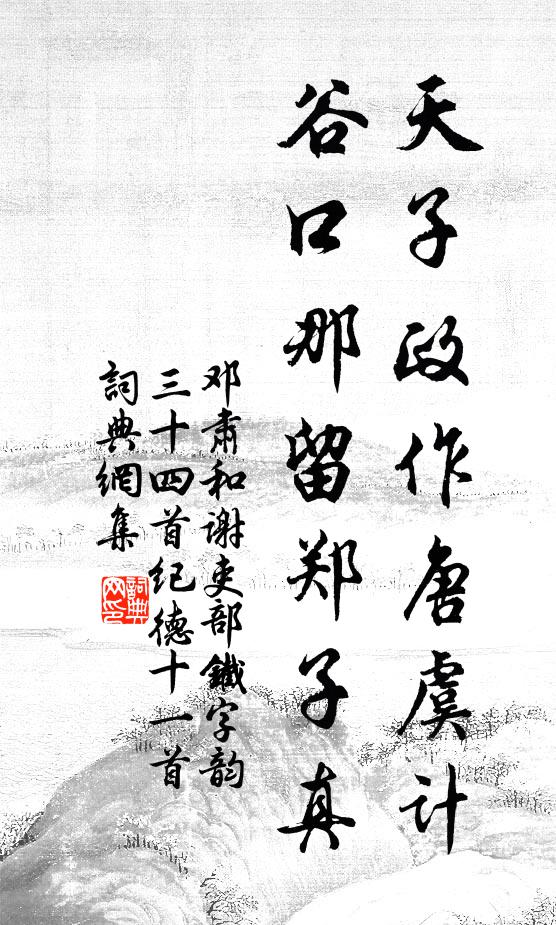 天子政作唐虞计
谷口那留郑子真
邓肃和谢吏部鐵字韵
三十四首纪德十一首
詞典網集
詞典网印